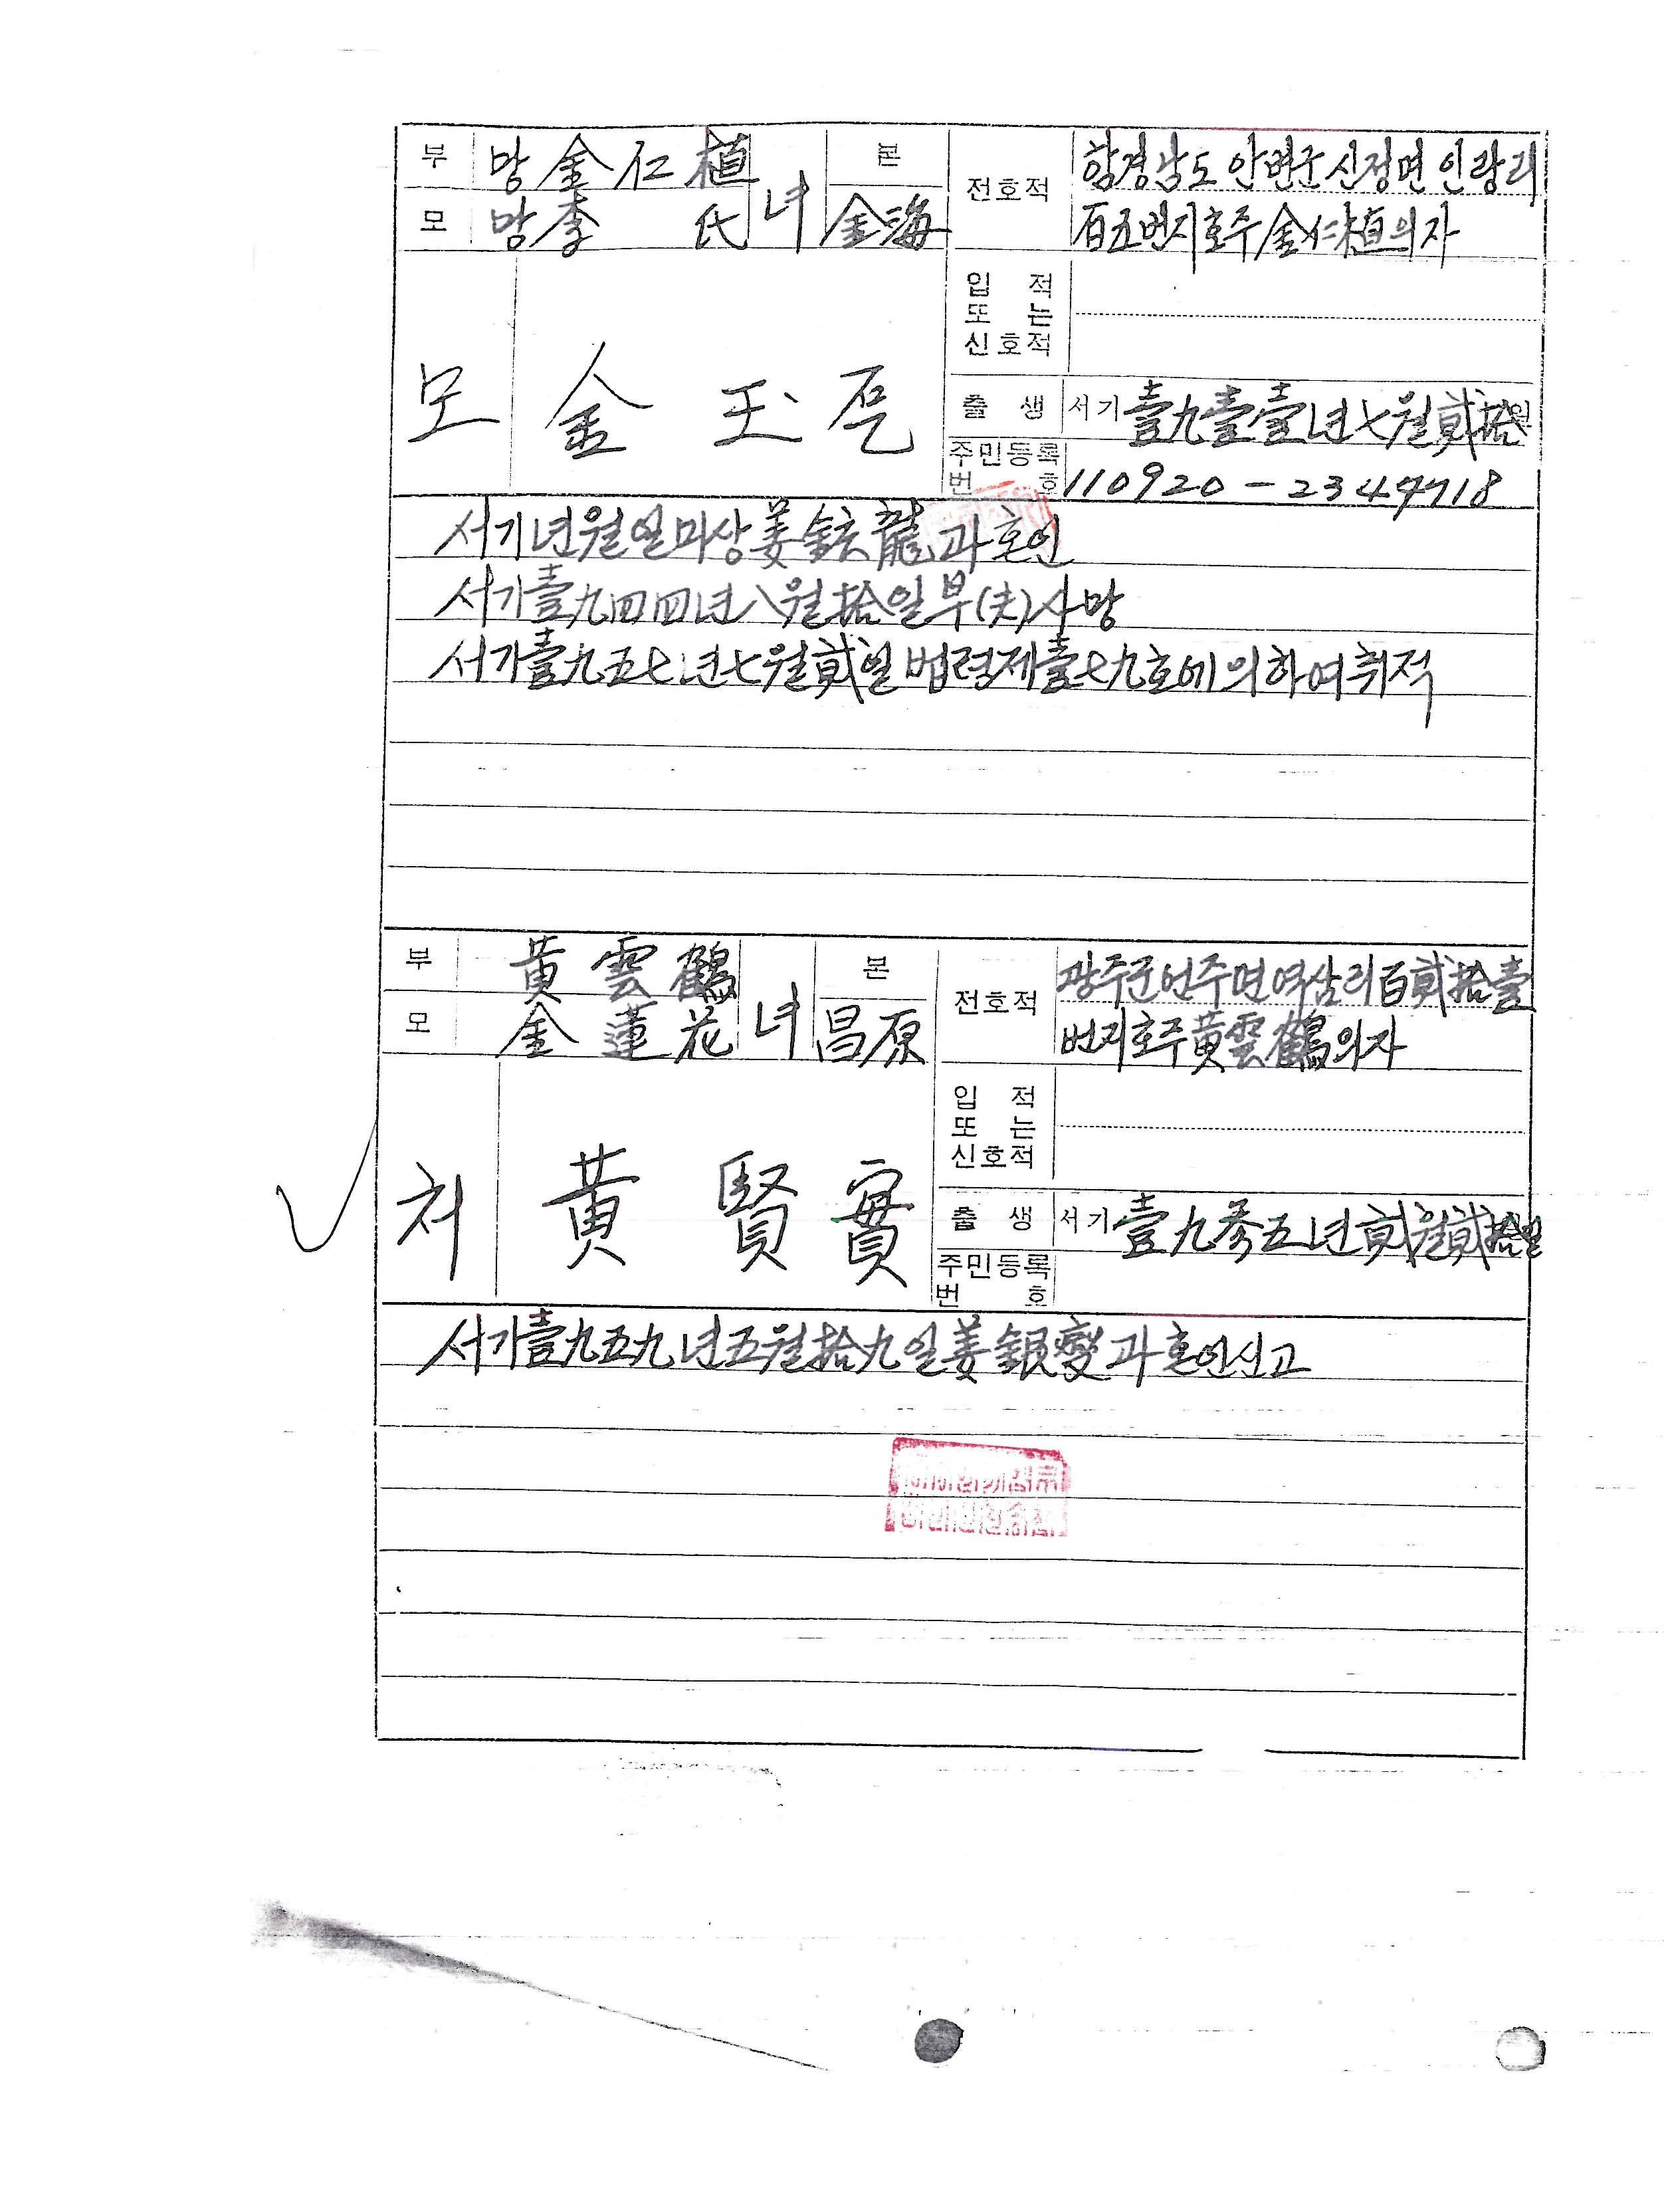 부 망 金仁植 녀 본 전호적 함경남도 안변군 신정면 인랑리
모 망 李 氏 金海 百五번지 호주 金仁植의 자
입 적
또 는
신호적
모 金 玉
출 생 서기 壹九壹壹년 七월 貳拾일
주민등록
번 호 110920-2347718
서기년월일미상 姜鉉龍과 혼인
서기壹九四四년八월拾일 부(夫)사망
서기壹九五七년七월貳일 법령제壹七九호에 의하여 취적
부 黃雲鶴 녀 본 전호적 광주군 언주면 역삼리 百貳拾壹
모 金蓮花 昌原 번지 호주 黃雲鶴의 자
입 적
또 는
신호적
처 黃 賢 實
출 생 서기 壹九參五년 貳월貳拾일
주민등록
번 호
서기壹九五九년五월拾九일 姜銀燮과 혼인신고